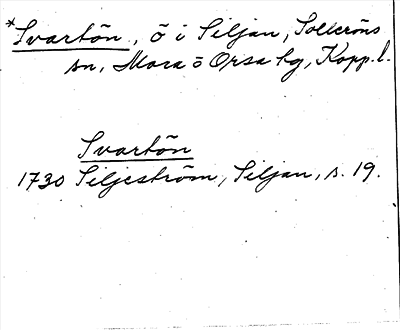 *Svartön, ö i Siljan, Solleröns
sn, Mora o Orsa tg, Kopp. l.
Svartön
1730 Siljeström, Siljan, s. 19.